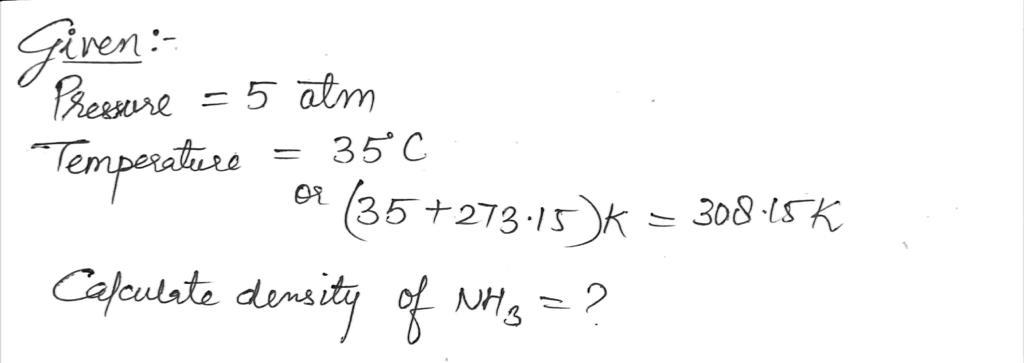 Given :-
Pressure = 5 atm
Temperature = 35°C
or (35+273.15)K = 308.15K
Calculate density of NH₃ = ?